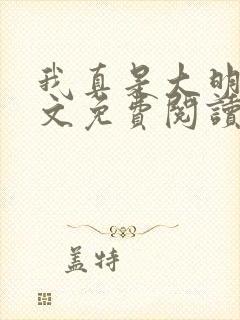 我真是大明
文免费阅读
盖特